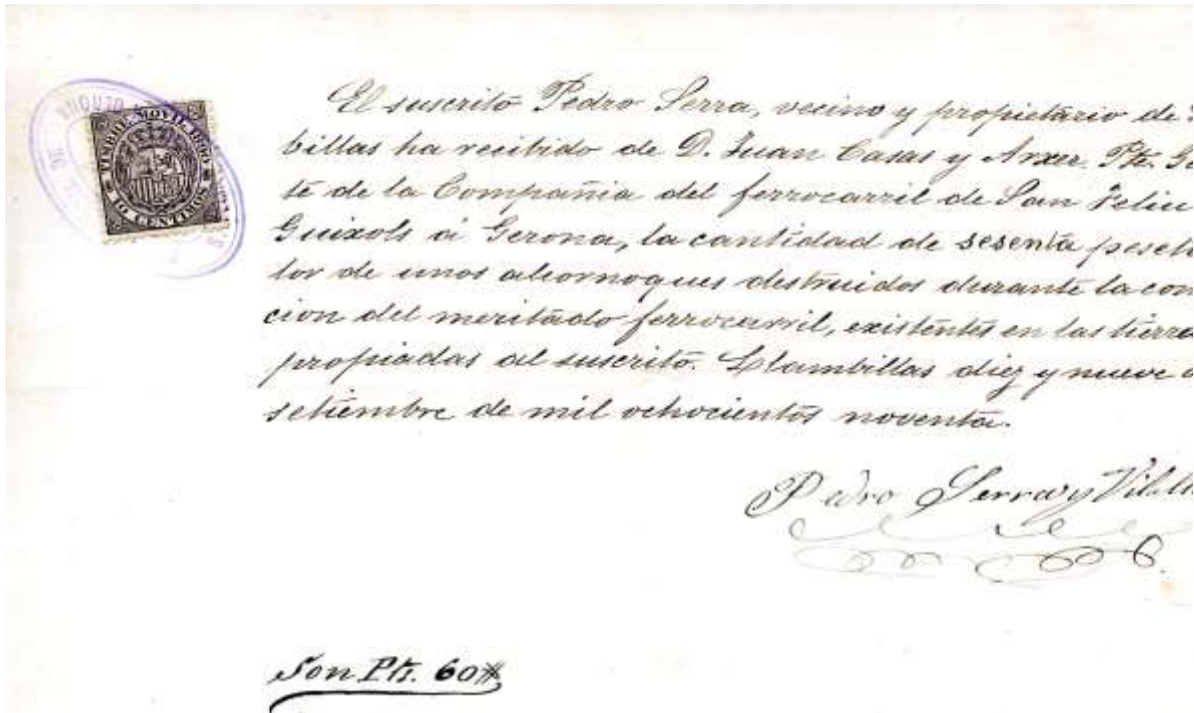 TIMBRE MOVIL 1890
10 CENTIMOS
El suscrito Pedro Serra, vecino y propietario de
billas ha recibido de D. Juan Casas y Arxer. Pte.
te de la Compañia del ferrocarril de San Feliu
Guixols á Gerona, la cantidad de sesenta peset
lor de unos alcornoques destruidos durante la con
cion del meritado ferrocarril, existentes en las tierra
propiadas al suscrito. Llambillas diez y nueve
setiembre de mil ochocientos noventa.
Pedro Serra y
Son Pts. 60#